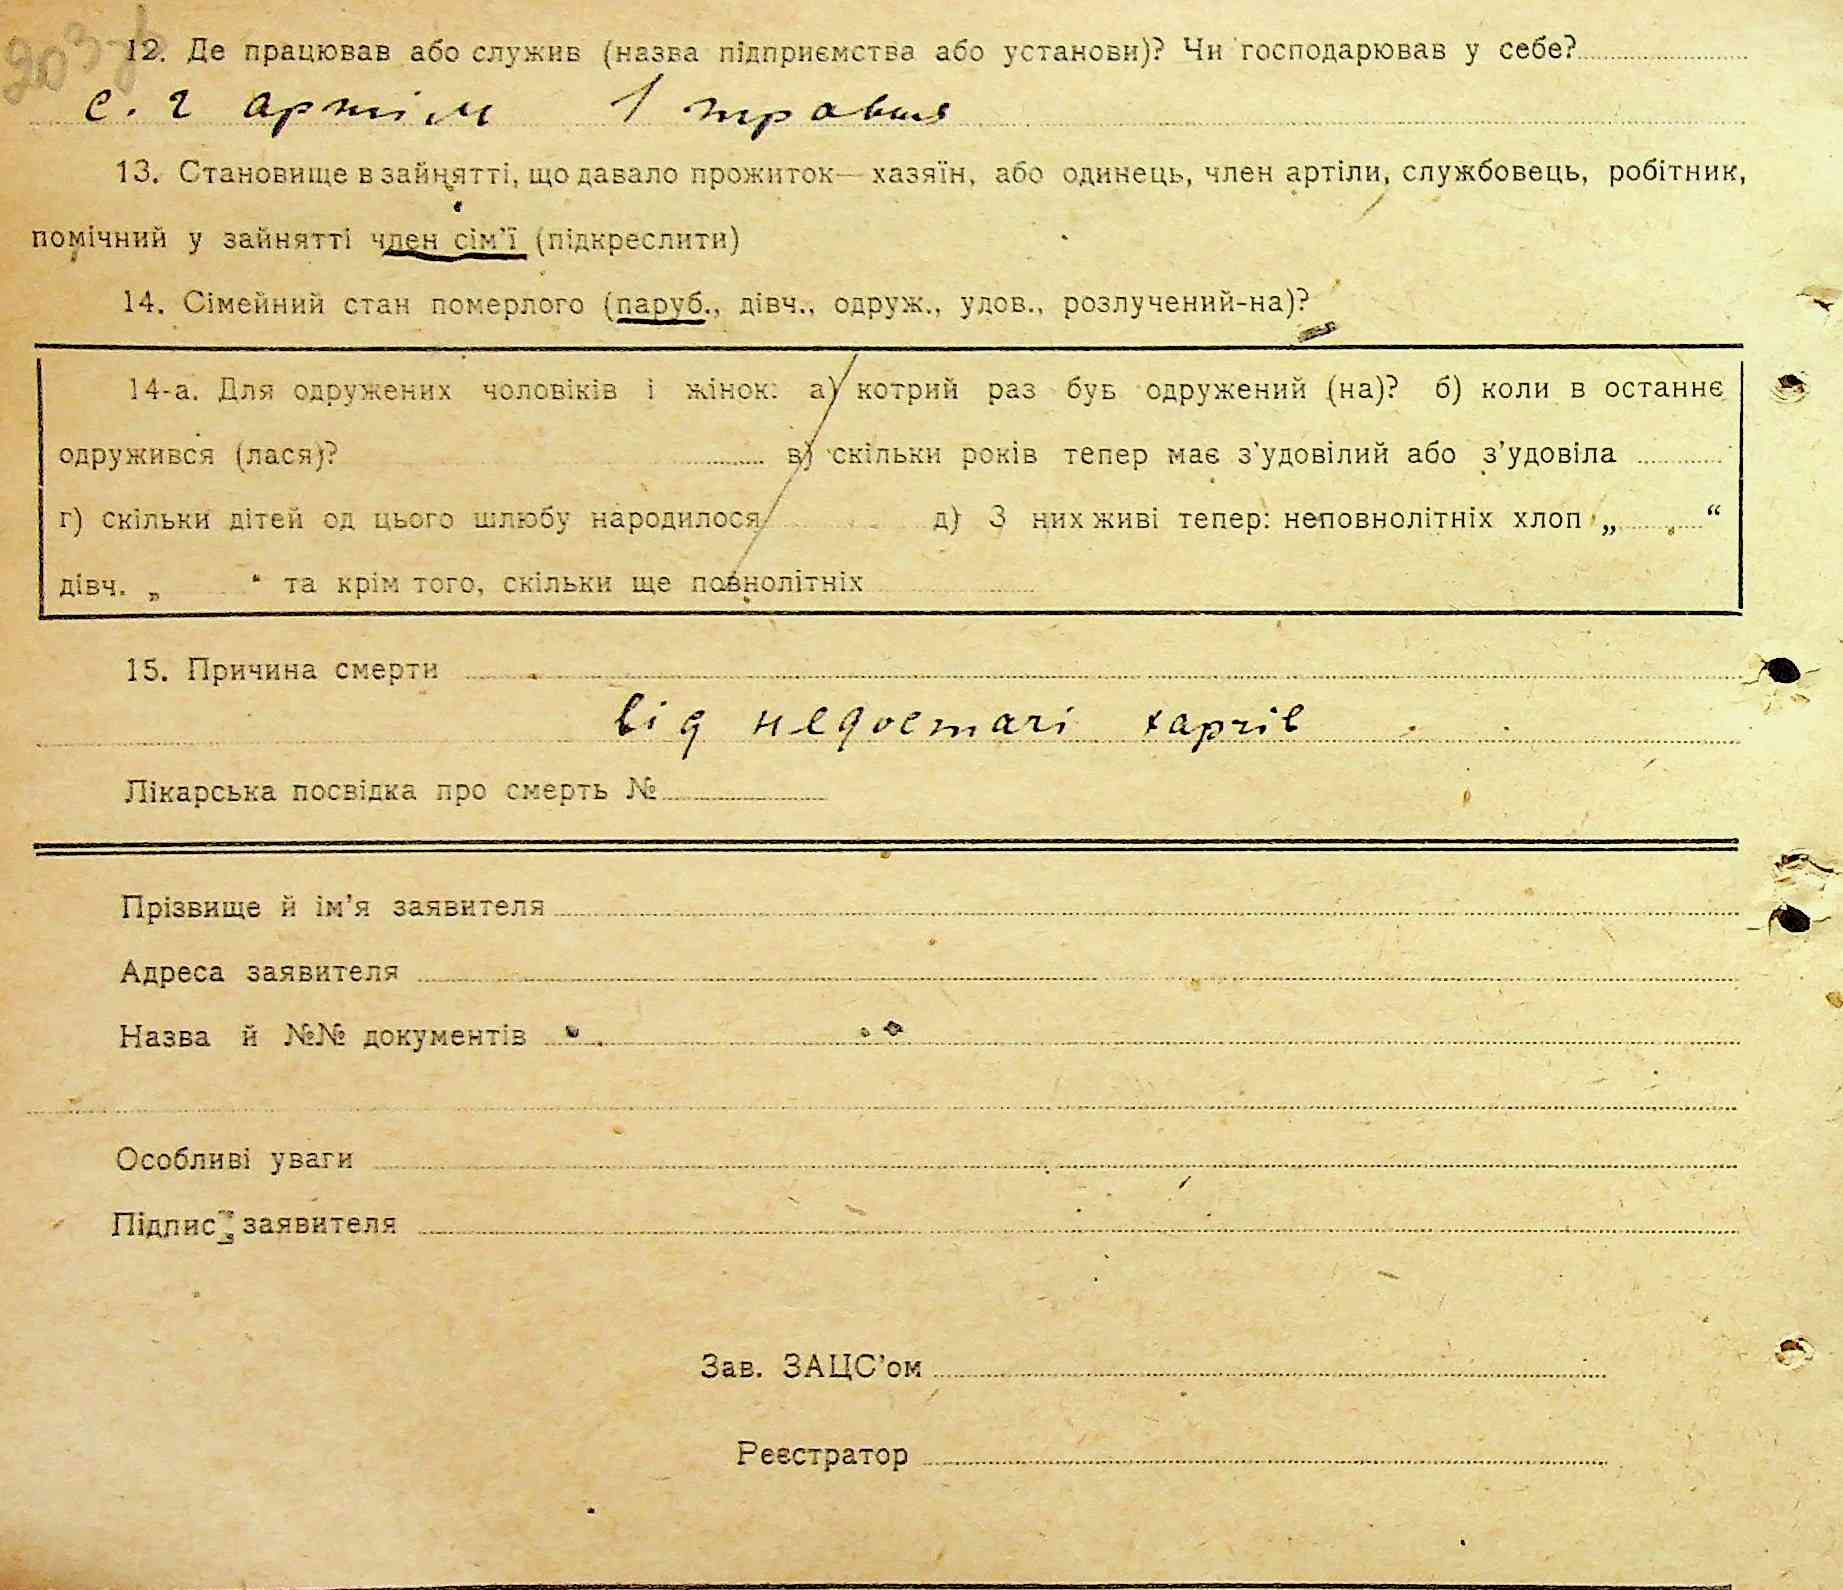 12. Де працював або служив (назва підприємства або установи)? Чи господарював у себе?
с. г артіль 1 травня
13. Становище в зайнятті, що давало прожиток— хазяїн, або одинець, член артіли, службовець, робітник,
помічний у зайнятті член сім'ї (підкреслити)
14. Сімейний стан померлого (паруб., дівч., одруж., удов., розлучений-на)?
14-а. Для одружених чоловіків і жінок: а) котрий раз був одружений (на)? б) коли в останнє
одружився (лася)? в) скільки років тепер має з'удовілий або з'удовіла
г) скільки дітей од цього шлюбу народилося д) З них живі тепер: неповнолітніх хлоп „ “
дівч. „ “ та крім того, скільки ще повнолітніх
15. Причина смерти
від недостачі харчів
Лікарська посвідка про смерть №
Прізвище й ім'я заявителя
Адреса заявителя
Назва й №№ документів
Особливі уваги
Підпис заявителя
Зав. ЗАЦС'ом
Реєстратор